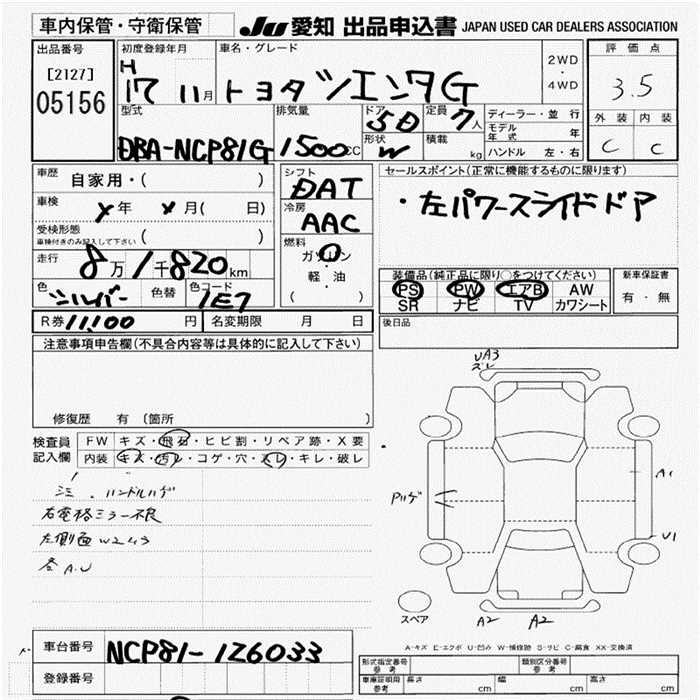 車内保管・守衛保管
JU 愛知 出品申込書 JAPAN USED CAR DEALERS ASSOCIATION
出品番号
[2127]
05156
初度登録年月
H
17 11月
車名・グレード
トヨタ シエンタG
2WD
・
4WD
評価点
3.5
外装 内装
C C
型式
DBA-NCP81G
排気量
1500CC
ドア
5D
形状
W
定員
7人
積載
kg
ディーラー・並行
モデル年式 年
ハンドル 左・右
車歴 自家用・( )
車検 年 月( 日)
受検形態
車検付きのみ記入して下さい ( )
走行 8万1千820km
色 シルバー 色替 色コード 1E7
シフト
DAT
冷房
AAC
燃料
ガソリン
軽・油
( )
セールスポイント(正常に機能するものに限ります)
・左パワースライドドア
装備品(純正品に限り○をつけてください)
PS PW エアB AW
SR ナビ TV カワシート
新車保証書
有・無
R券 11,100 円 名変期限 月 日
後日品
注意事項申告欄(不具合内容等は具体的に記入して下さい)
修復歴 有 (箇所 )
検査員
記入欄
FW キズ・飛石・ヒビ割・リペア跡・X要
内装 キズ・汚レ・コゲ・穴・スレ・キレ・破レ
シミ . ハンドルハゲ
右電格ミラー不良
左側面W2 43
各A.U
UA3
ズレ
Pハゲ
A1
U1
スペア
A2 A2
A-キズ E-エクボ U-凹み W-補修跡 S-サビ C-腐食 XX-交換済
車台番号 NCP81-1Z6033
登録番号
形式指定番号
参考
類別区分番号
参考
車庫証明用
参考
長さ cm 幅 cm 高さ cm